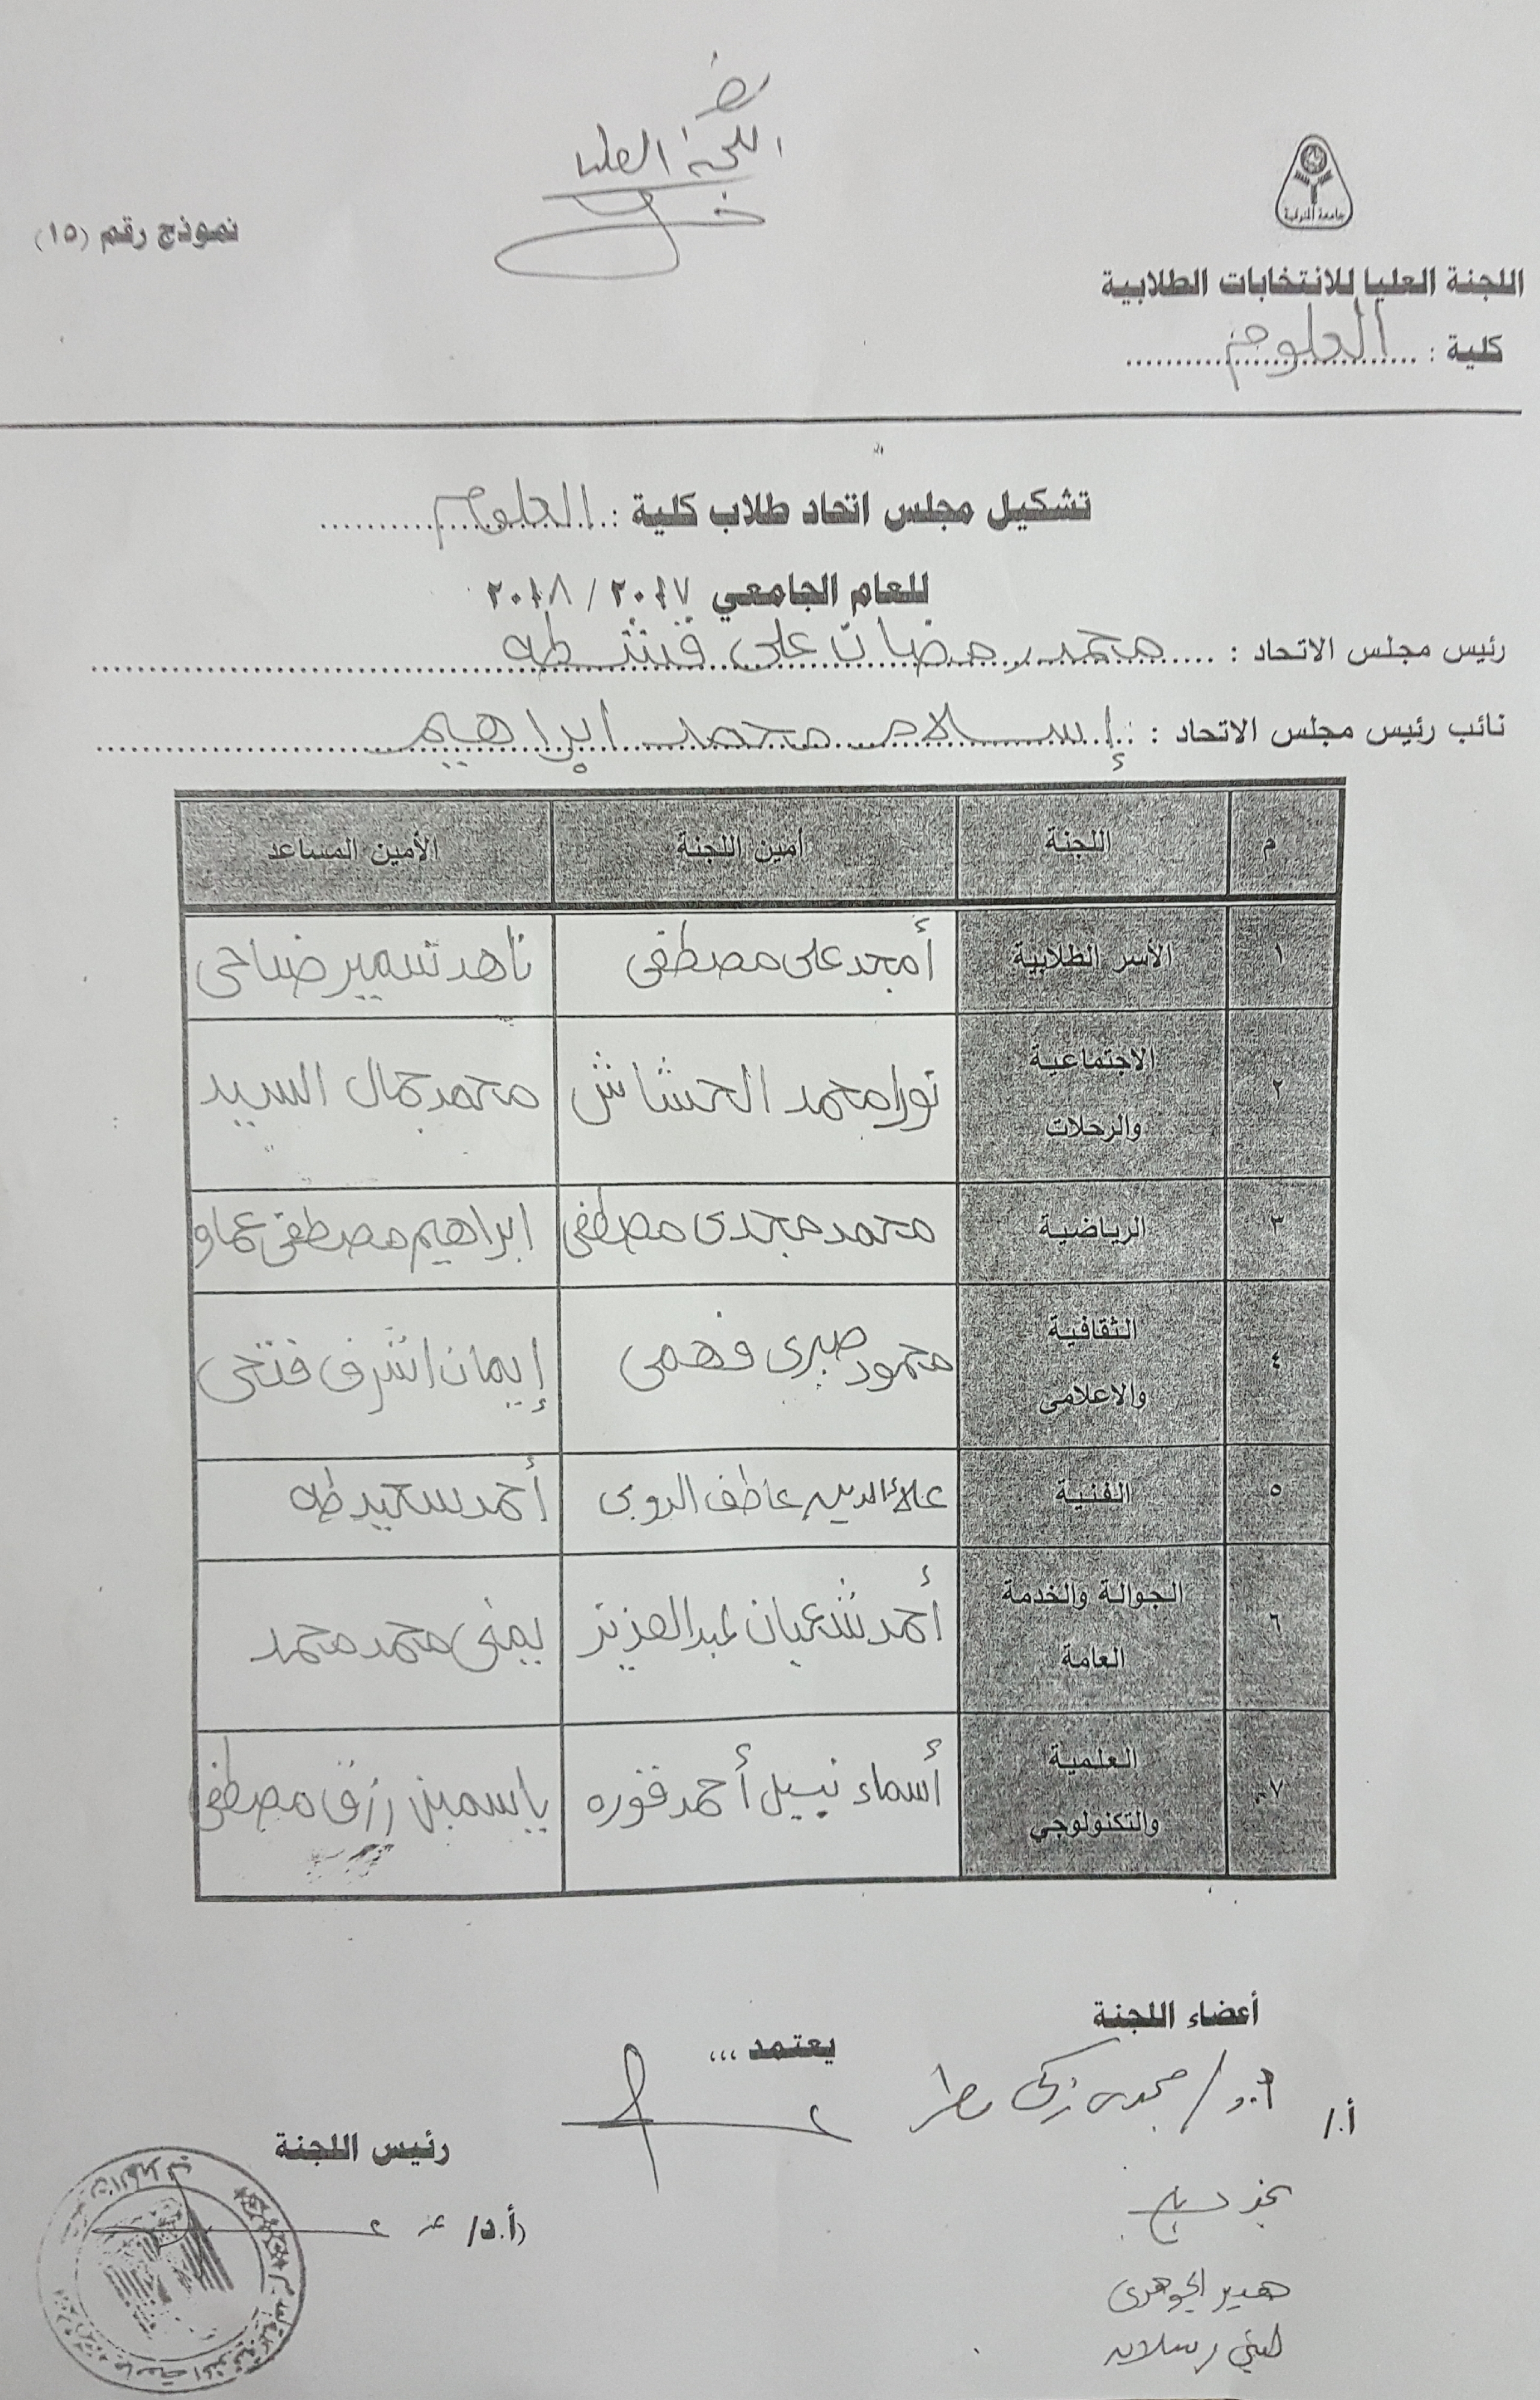 جامعة المنوفية
اللجنة العليا للانتخابات الطلابية
كلية : العلوم
نموذج رقم (١٥)
اللجنة العليا
تشكيل مجلس اتحاد طلاب كلية : العلوم
للعام الجامعي ٢٠١٧ / ٢٠١٨
رئيس مجلس الاتحاد : محمد رمضان على قشطه
نائب رئيس مجلس الاتحاد : إسلام محمد إبراهيم
م اللجنة أمين اللجنة الأمين المساعد
١ الأسر الطلابية أمجد على مصطفى ناهد سمير ضاحى
٢ الاجتماعية والرحلات نورا محمد الحشاش محمد جمال السيد
٣ الرياضية محمد مجدى مصطفى ابراهيم مصطفى عماو
٤ الثقافية والاعلامى محمود صبرى فهمى إيمان اشرف فتحى
٥ الفنية علاء الدين عاطف الروبى أحمد سعيد طه
٦ الجوالة والخدمة العامة أحمد شعبان عبد العزيز يمنى محمد محمد
٧ العلمية والتكنولوجي أسماء نبيل أحمد قوره ياسمين رزق مصطفى
أعضاء اللجنة
يعتمد ...
أ./ أ.د/ مجدى زكى مطر
رئيس اللجنة
أ.د/
هدير الجوهرى
لبنى رسلان